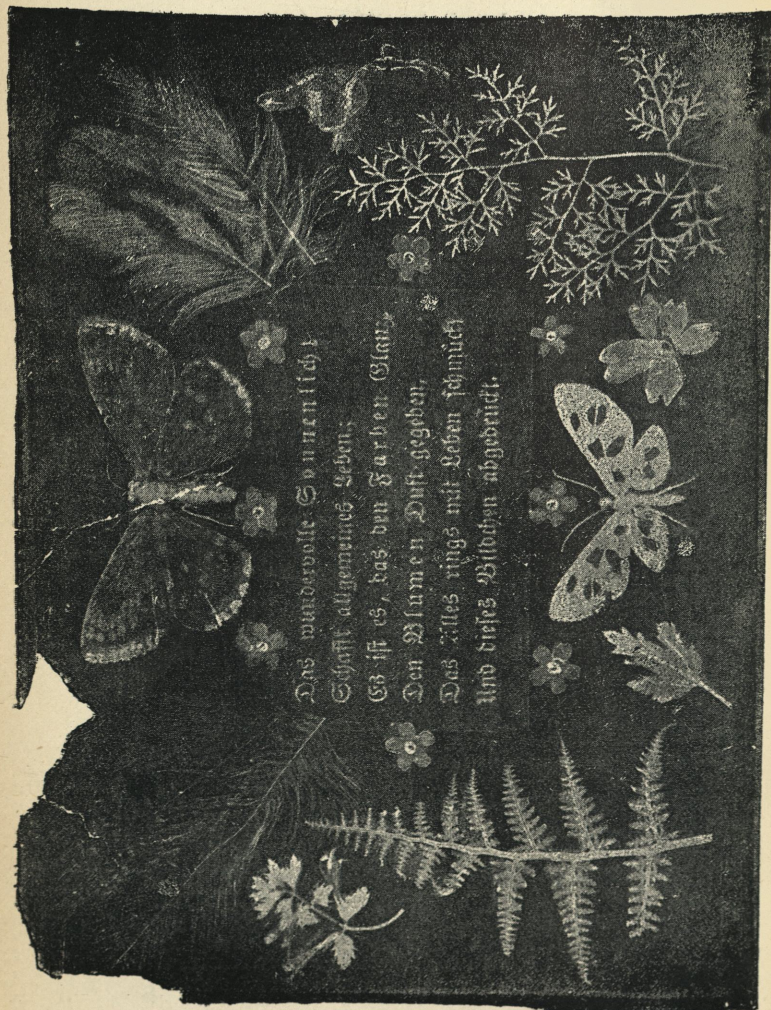 Das wundervolle Sonnenlicht
Schafft allgemeines Leben;
Es ist es, das den Farben Glanz,
Den Blumen Duft gegeben,
Das Alles rings mit Leben schmückt
Und dieses Bildchen abgedrückt.